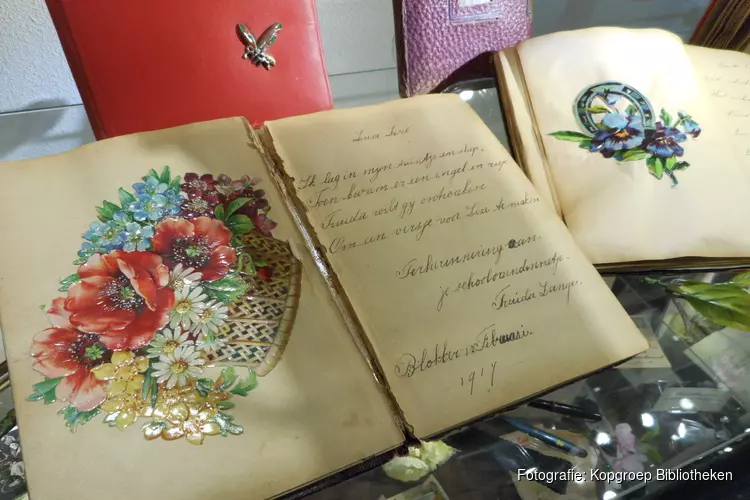 Lieve Lize
Ik lag in mijn huisje en sliep,
Toen kwam er een engel en riep
Truida wilt gy ontwaken
Om een versje voor Lize te maken
Ter herinnering aan
je schoolvriendinnetje
Truida Lange.
Blokker 12 Februari
1917
Fotografie: Kopgroep Bibliotheken